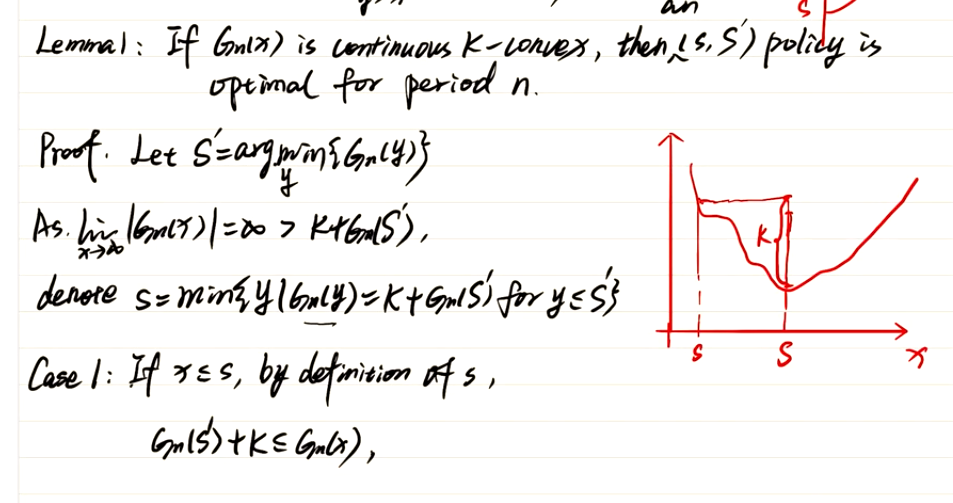 an
S
Lemma1: If Gn(x) is continuous K-convex, then (s, S') policy is
optimal for period n.
Proof. Let S'=argmin{Gn(y)}
y
As. lim |Gn(x)|=∞ > K+Gn(S'),
x→∞
denote s=min{y|Gn(y)=K+Gn(S') for y≤S'}
Case 1: If x≤s, by definition of s,
Gn(S')+K≤Gn(x),
K
s
S
x